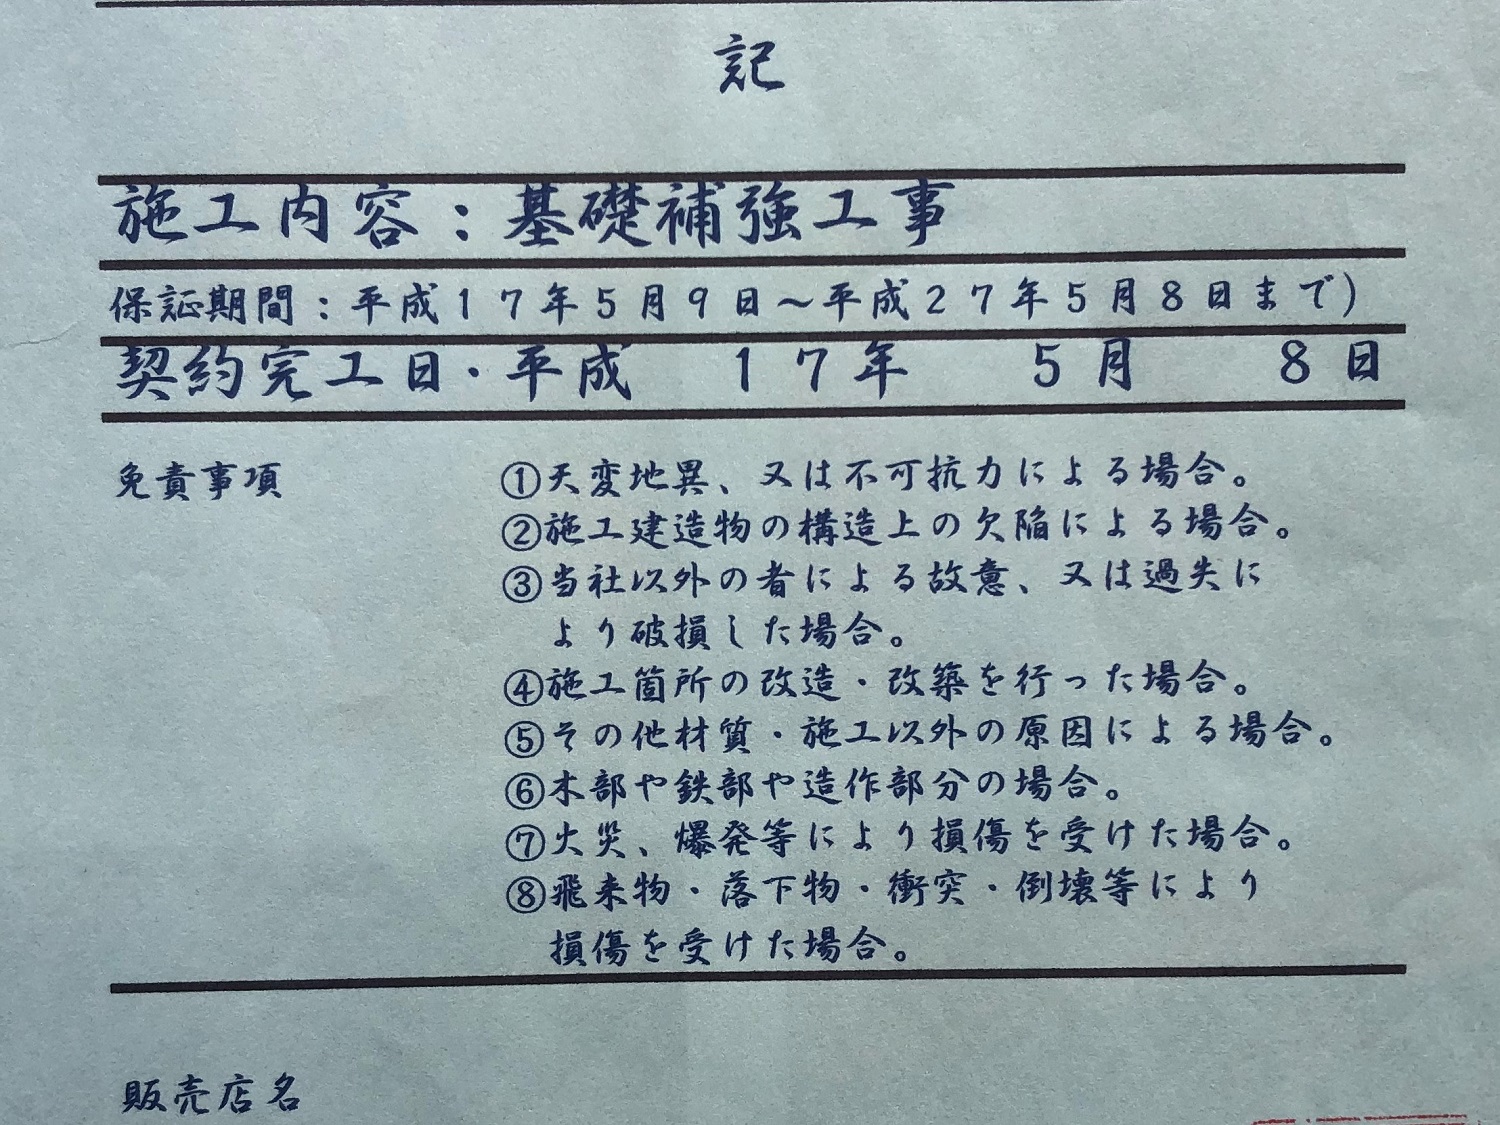 記
施工内容：基礎補強工事
保証期間：平成１７年５月９日～平成２７年５月８日まで）
契約完工日・平成　１７年　５月　８日
免責事項　①天変地異、又は不可抗力による場合。
②施工建造物の構造上の欠陥による場合。
③当社以外の者による故意、又は過失に
より破損した場合。
④施工箇所の改造・改築を行った場合。
⑤その他材質・施工以外の原因による場合。
⑥木部や鉄部や造作部分の場合。
⑦火災、爆発等により損傷を受けた場合。
⑧飛来物・落下物・衝突・倒壊等により
損傷を受けた場合。
販売店名